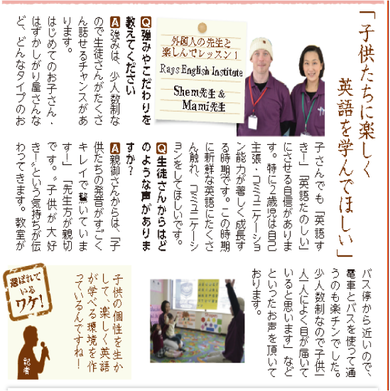 「子供たちに楽しく
英語を学んでほしい」
外国人の先生と
楽しんでレッスン!
Rays English Institute
Shem先生&
Mami先生
Q強みやこだわりを
教えてください
A強みは、少人数制な
ので生徒さんがたくさ
ん話せるチャンスがあ
ります。
はじめてのお子さん・
はずかしがり屋さんな
ど、どんなタイプのお
子さんでも「英語す
き!」「英語たのしい」
にさせる自信がありま
す。特に2歳児は自己
主張・コミュニケーショ
ン能力が著しく成長す
る時期です。この時期
に新鮮な英語にたくさ
ん触れ、コミュニケーシ
ョンをしてほしいです。
Q生徒さんからはど
のような声がありま
すか?
A親御さんからは、「子
供たちの発音がすごく
キレイで驚いていま
す!」「先生方が親切
です。。子供が大好
き!」という気持ちが伝
わってきます。教室が
バス停から近いので、
電車とバスを使って通
うのも楽チンでした。
少人数制なので子供一
人一人によく目が届いて
いると思います」など
といったお声を頂いて
おります。
選ばれて
いる
ワケ!
記者
子供の個性を生か
して、楽しく英語
が学べる環境を作
っているんですね!